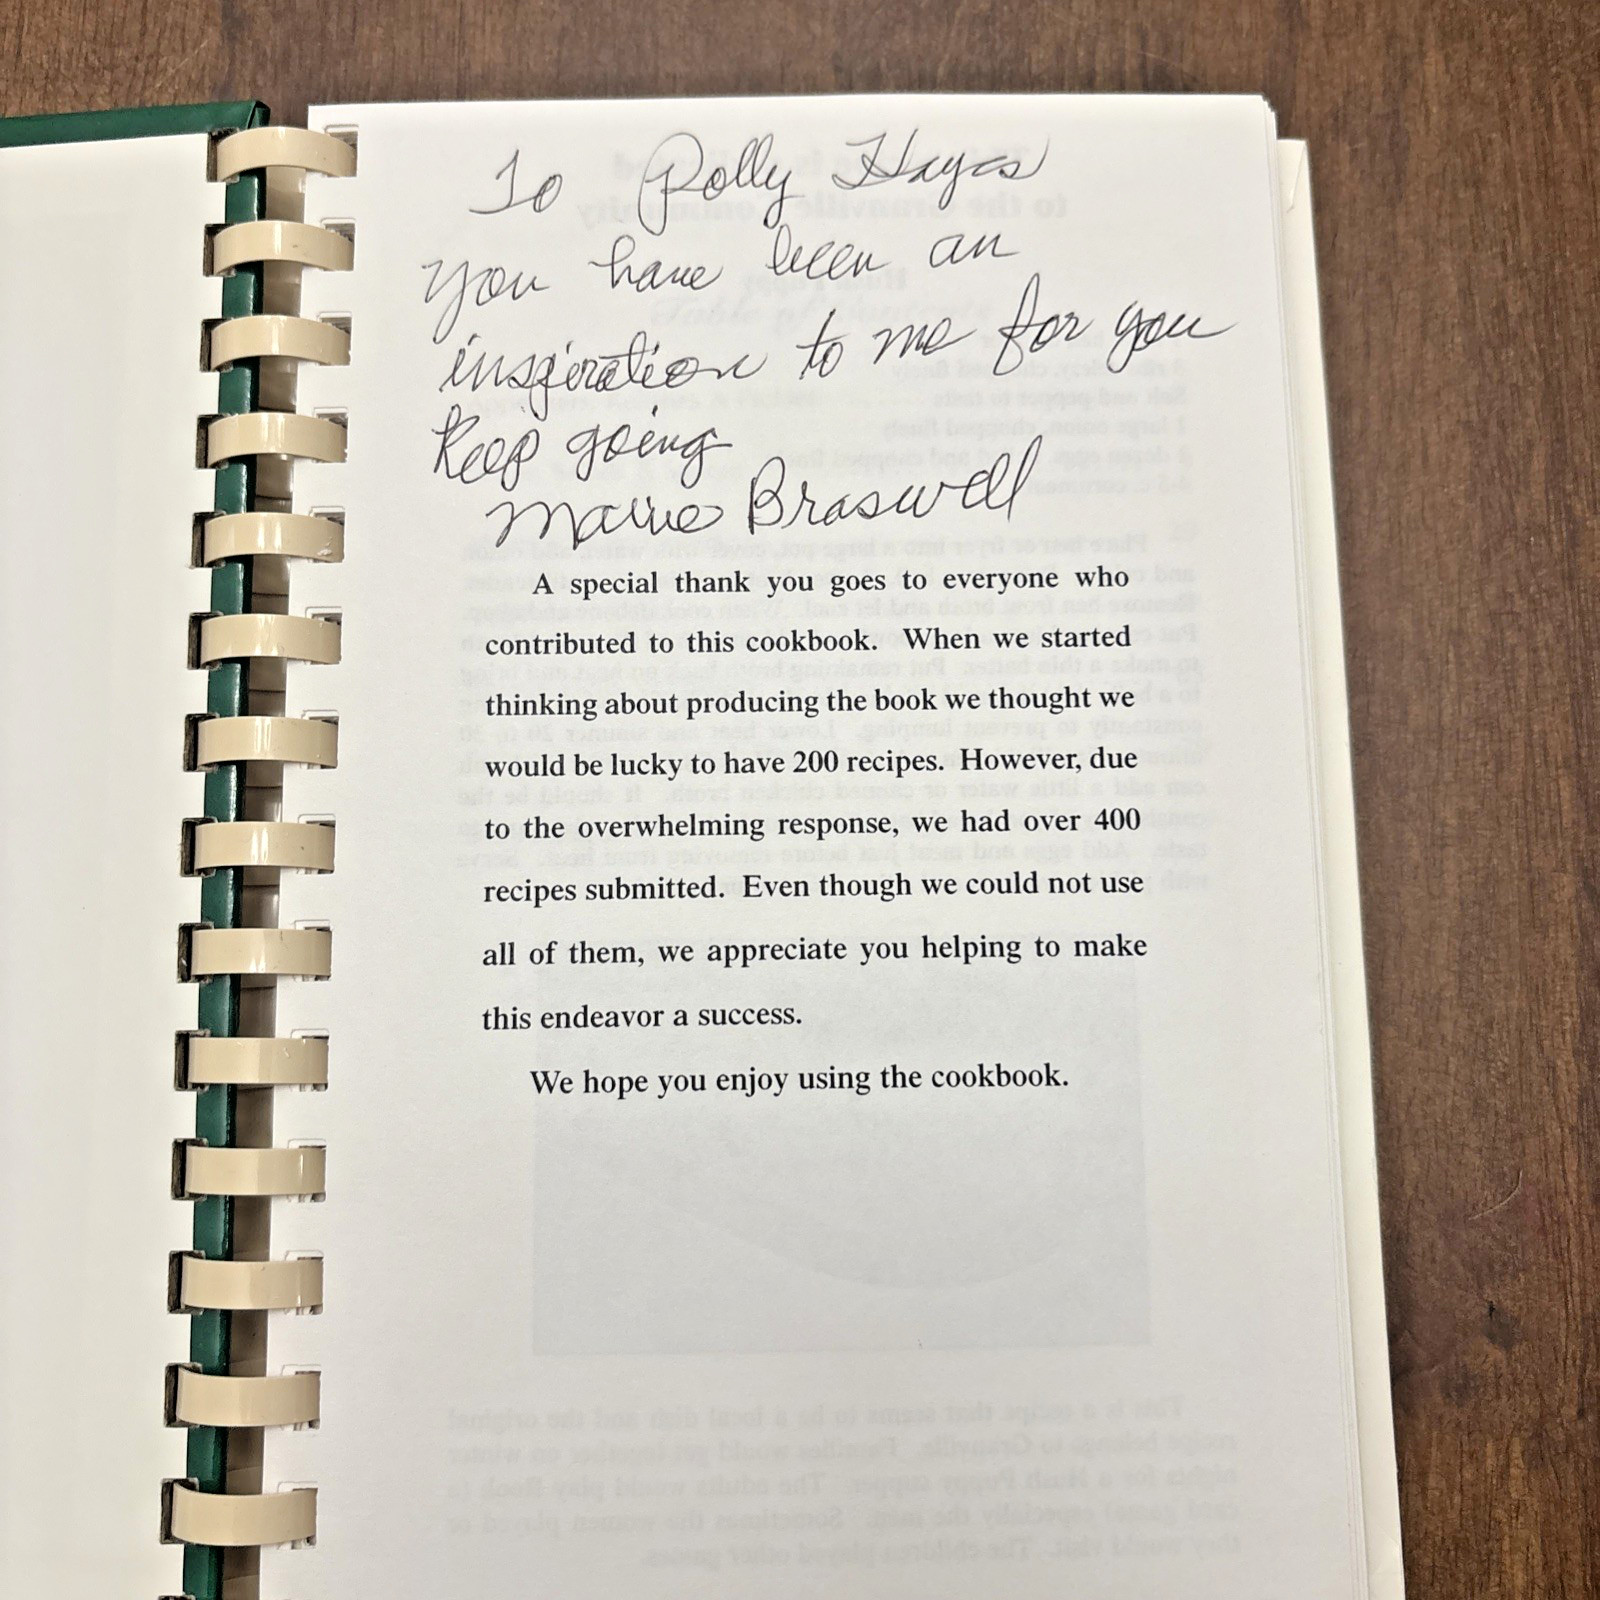 To Polly Hayes
you have been an
inspiration to me for you
keep going
Braswell
A special thank you goes to everyone who
contributed to this cookbook. When we started
thinking about producing the book we thought we
would be lucky to have 200 recipes. However, due
to the overwhelming response, we had over 400
recipes submitted. Even though we could not use
all of them, we appreciate you helping to make
this endeavor a success.
We hope you enjoy using the cookbook.